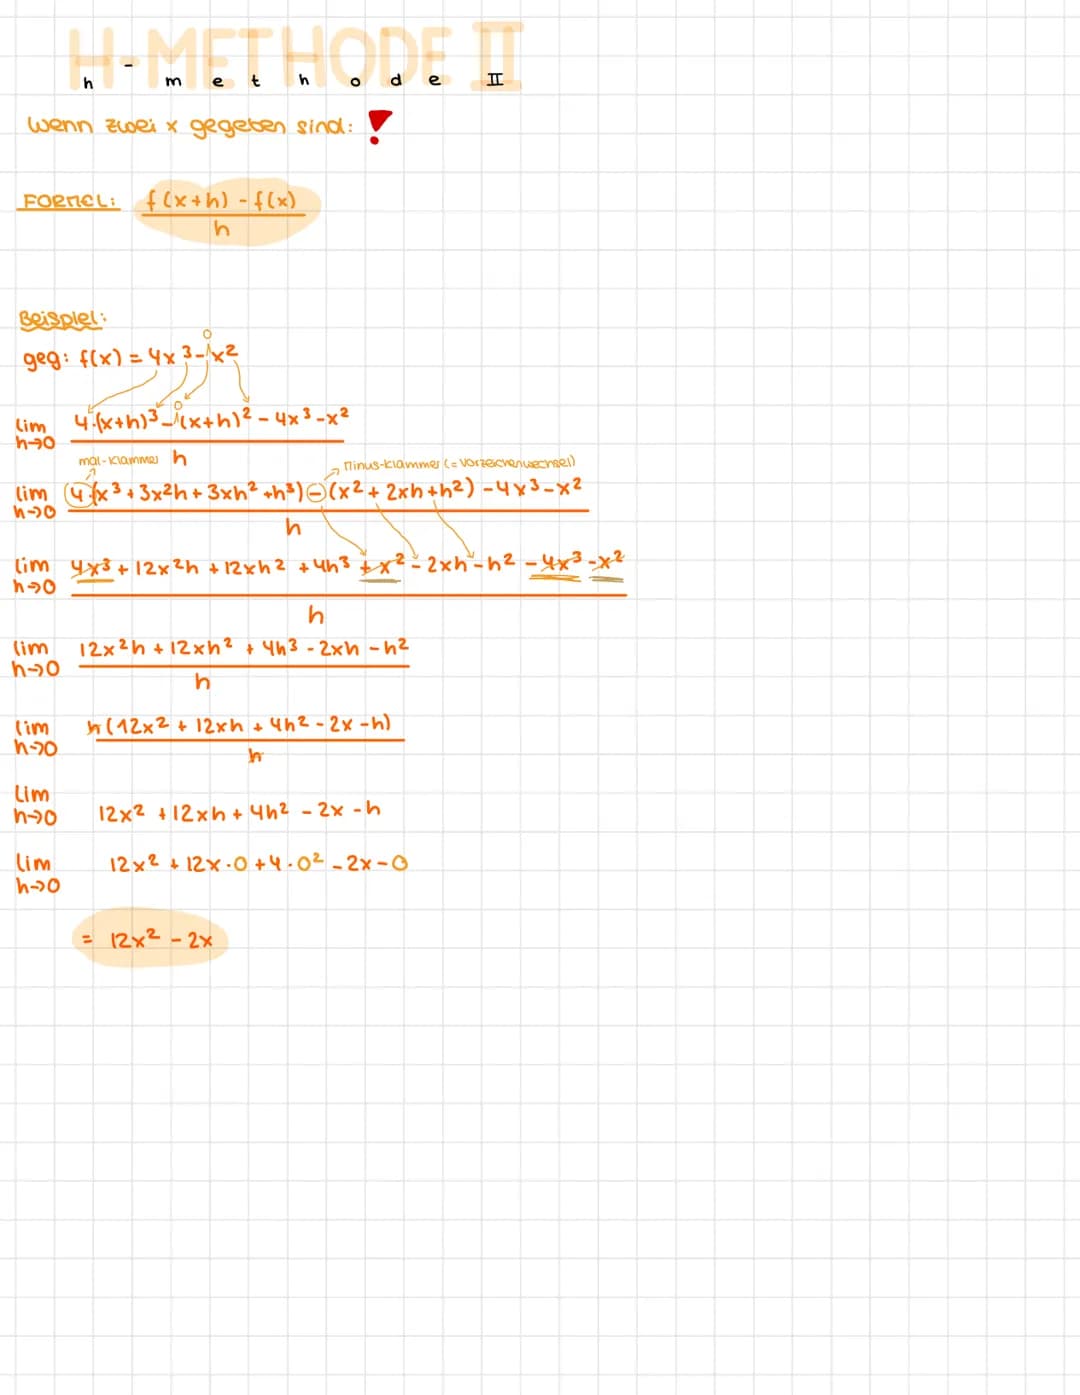 H-METHODE II
h - methode II
wenn zwei x gegeben sind: !
FORMEL: f(x+h) - f(x)
h
Beispiel:
geg: f(x) = 4x³-1x²
lim 4·(x+h)³-1(x+h)² - 4x³-x²
h→0
mal-Klammer h
Minus-Klammer (= Vorzeichenwechsel)
lim 4·(x³+3x²h+3xh²+h³)-(x²+2xh+h²) -4x³-x²
h→0
h
lim 4x³+12x²h+12xh²+4h³+x²-2xh-h²-4x³-x²
h→0
h
lim 12x²h+12xh²+4h³-2xh-h²
h→0
h
lim h(12x²+12xh+4h²-2x-h)
h→0
h
lim
h→0 12x²+12xh+4h²-2x-h
lim 12x²+12x·0+4·0²-2x-0
h→0
= 12x²-2x